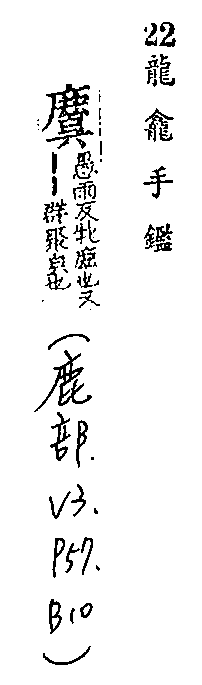 22 龍龕手鑑
麌 愚雨反牝鹿也又
｜｜群聚皃也
(鹿部. V3. P57. B10)